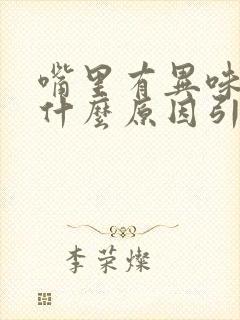 嘴里有異味
什麼原因引
李荣燦